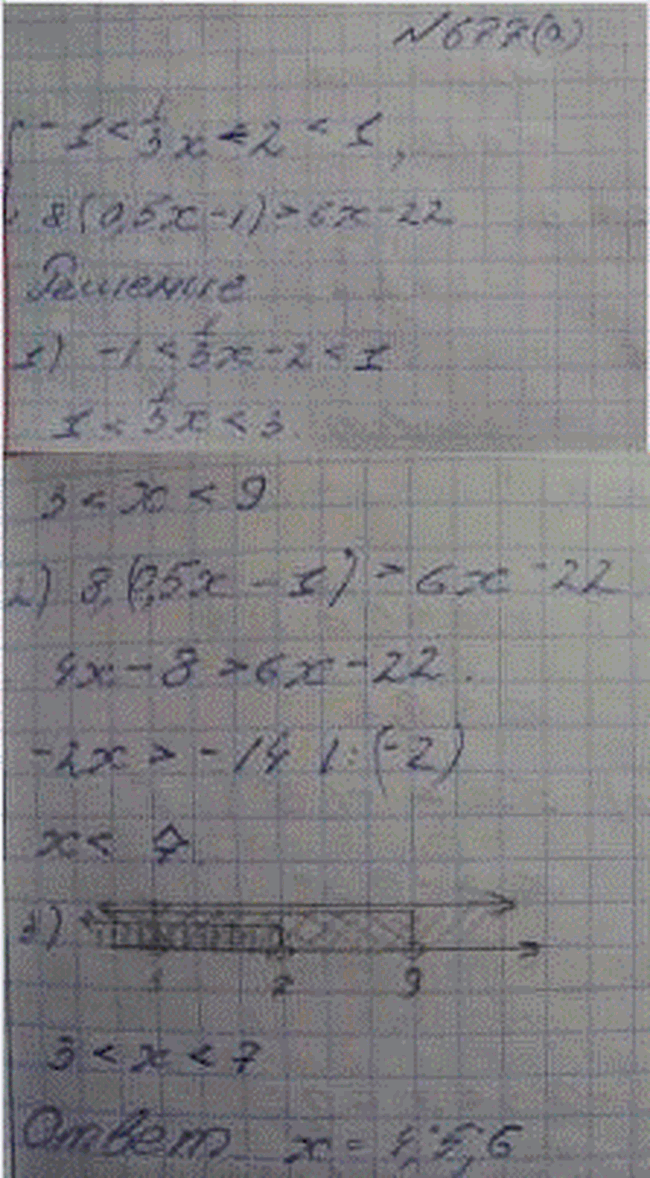 №677(а)
-1 < 1/3 x - 2 < 1,
8(0,5x-1) > 6x-22
Решение
1) -1 < 1/3 x - 2 < 1
1 < 1/3 x < 3
3 < x < 9
2) 8(0,5x - 1) > 6x - 22
4x - 8 > 6x - 22.
-2x > -14 | : (-2)
x < 7
3)
7 9
3 < x < 7
Ответ x = 4; 5; 6